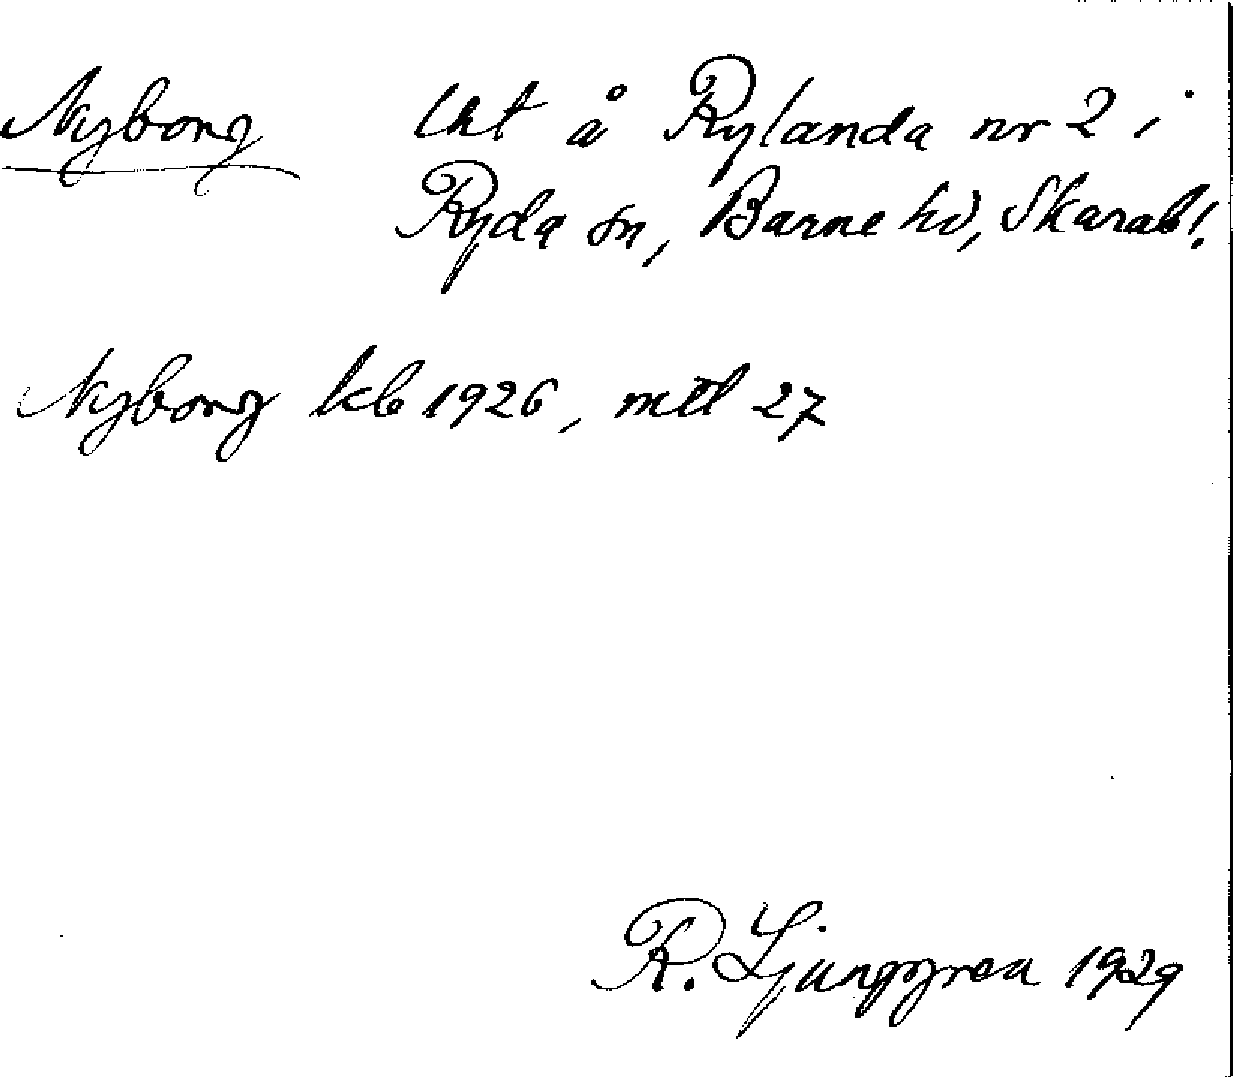 Nyborg lht å Rylanda nr 2 i
Ryda sn, Barne hd, Skarab l.
Nyborg kb 1926, mtl 27
R. Ljunggren 1929